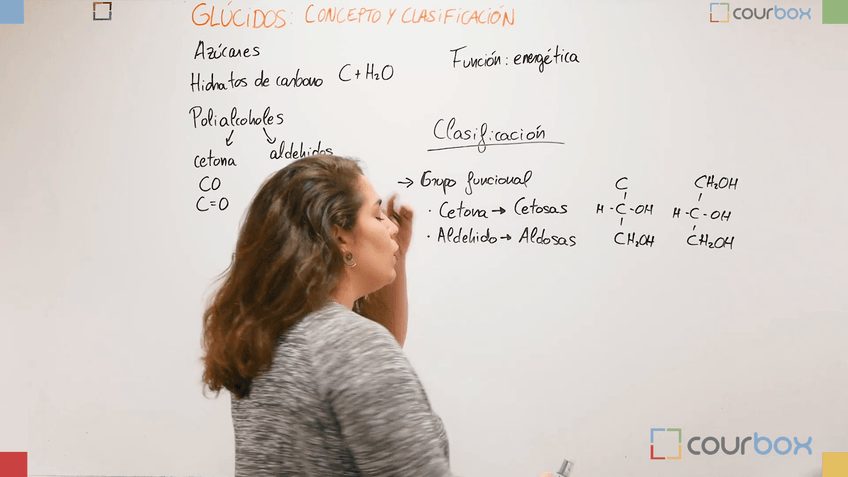 GLÚCIDOS: CONCEPTO Y CLASIFICACIÓN
courbox
Azúcares
Hidratos de carbono C + H₂O
Función: energética
Polialcoholes
cetona aldehidos
CO
C=O
Clasificación
→ Grupo funcional
· Cetona → Cetosas
· Aldehido → Aldosas
C
H - C - OH
CH₂OH
CH₂OH
H - C - OH
CH₂OH
courbox